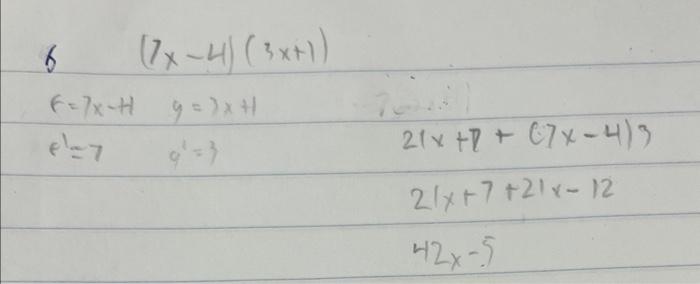 6 (7x-4)(3x+1)
f=7x-4 g=3x+1
f'=7 g'=3
21x+7+(7x-4)3
21x+7+21x-12
42x-5